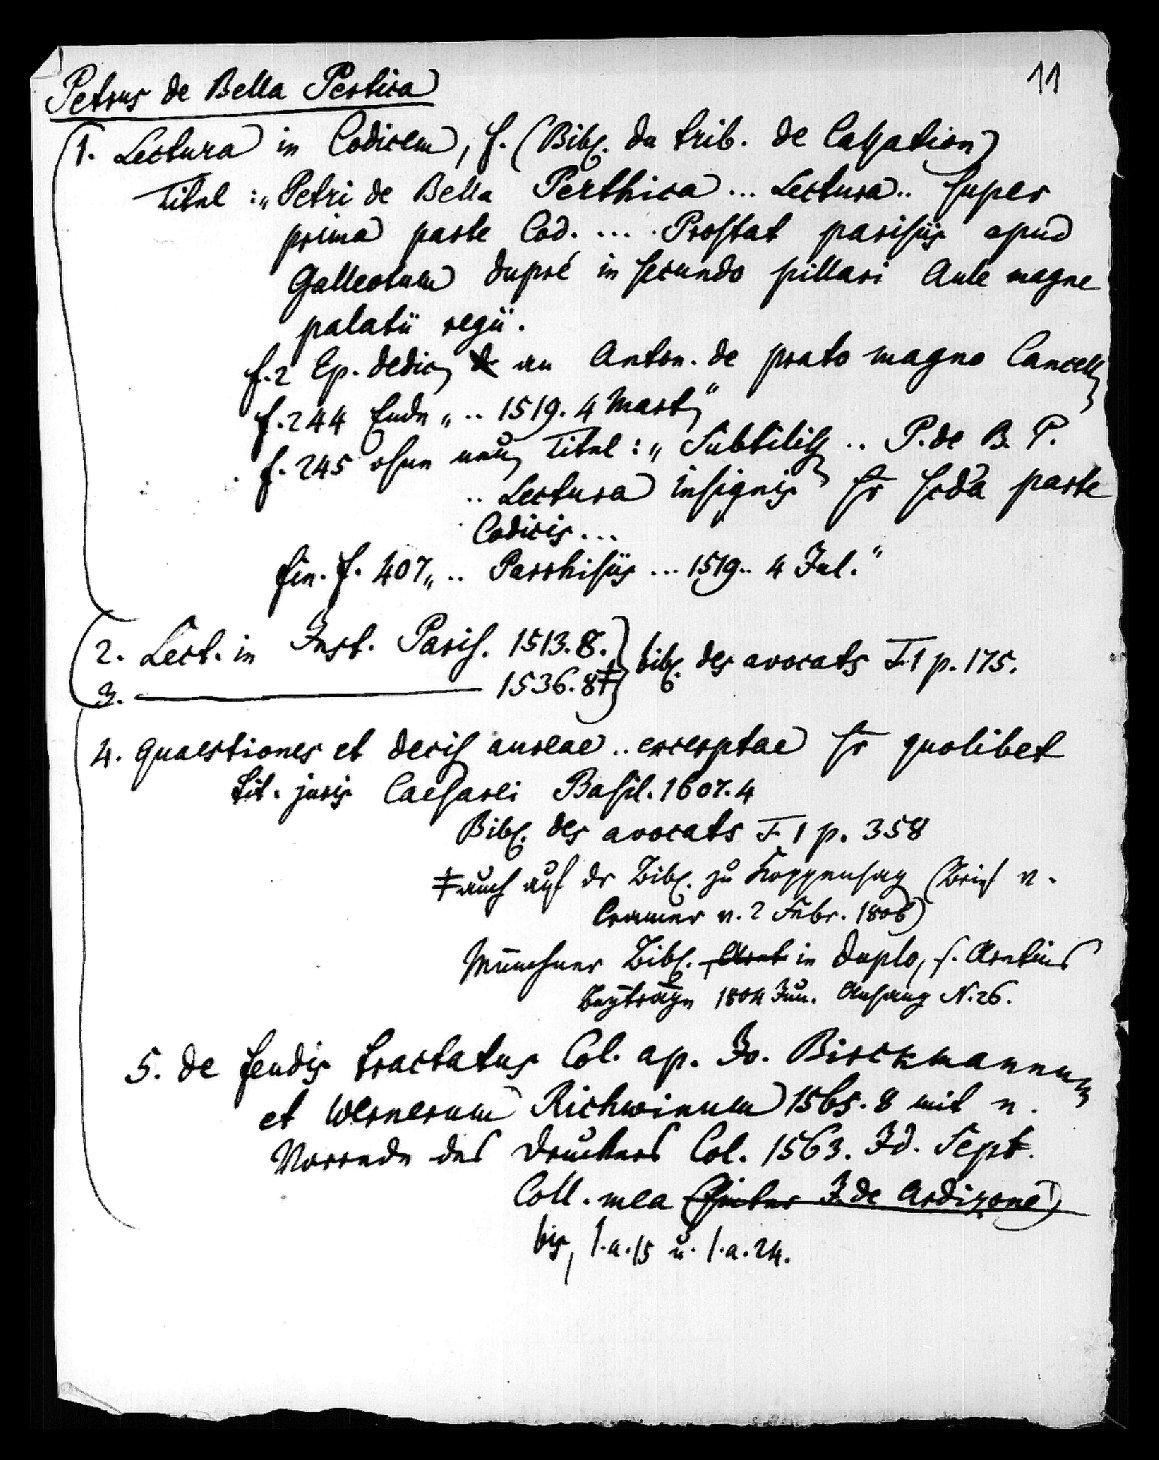 11
Petrus de Bella Pertica
1. Lectura in Codicem, f. (Bibl. du trib. de Cassation)
Titel: „Petri de Bella Perthica ... Lectura .. super
prima parte Cod. .... Prostat parisiis apud
Galleotum dupré in secundo pillari Aule magne
palatii regii.
f. 2 Ep. dedic. an Anton. de prato magno Cancell.
f. 244 Ende „ .. 1519. 4 Mart."
f. 245 ohne neuen Titel: „ Subtiliss. .. P. de B. P.
.. Lectura insignis sr scda parte
Codicis ...
fin. f. 407 „ .. Parrhisiis ... 1519 .. 4 Jul."
2. Lect. in Inst. Paris. 1513. 8.
3. ———— 1536. 8 ‡ } bibl. des avocats T. 1 p. 175.
4. quaestiones et decis aureae .. excerptae sr quolibet
tit. juris Caesarei Basil. 1607. 4
Bibl. des avocats T. 1 p. 358
‡ auch auf der Bibl. zu Koppenhag (Brief v.
Cramer v. 2 Febr. 1808)
Münchner Bibl. in duplo, s. Aretins
beyträge 1804 Jun. Anhang N. 26.
5. de feudis tractatus Col. ap. Jo. Birckmannum
et Wernerum Richwinum 1565. 8 mit n.
Vorrede des Druckers Col. 1563. Id. Sept.
Coll. mea (hinter J. de Ardizone)
bis, I. a. 15 u. I. a. 24.